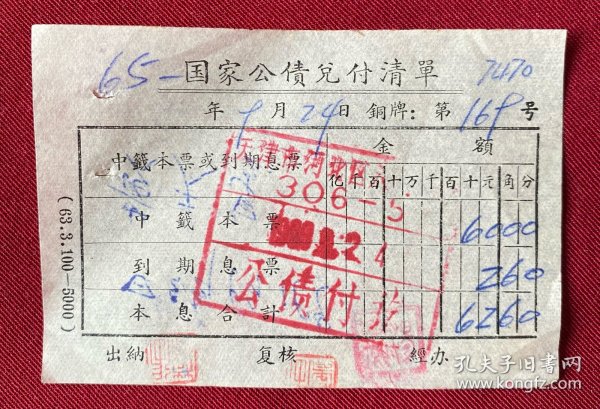 65- 国家公债兑付清單 7470
年 9 月 24 日 銅牌: 第 169 号
中籤本票或到期息票 金額
亿千百十万千百十元角分
中籤本票 6000
到期息票 260
本息合計 6260
出納 复核 經办
(63.3.100-5000)
天津市河北区
306-5
公债付
孔夫子旧书网
www.kongfz.com